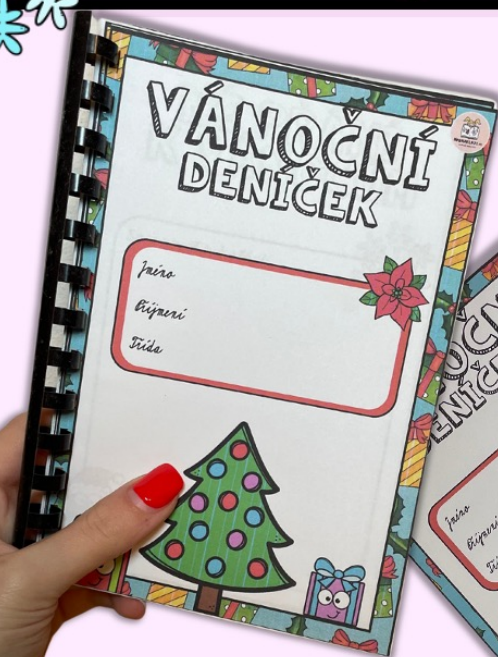 VÁNOČNÍ
DENÍČEK
Jméno
Příjmení
Třída
Jméno
Příjmení